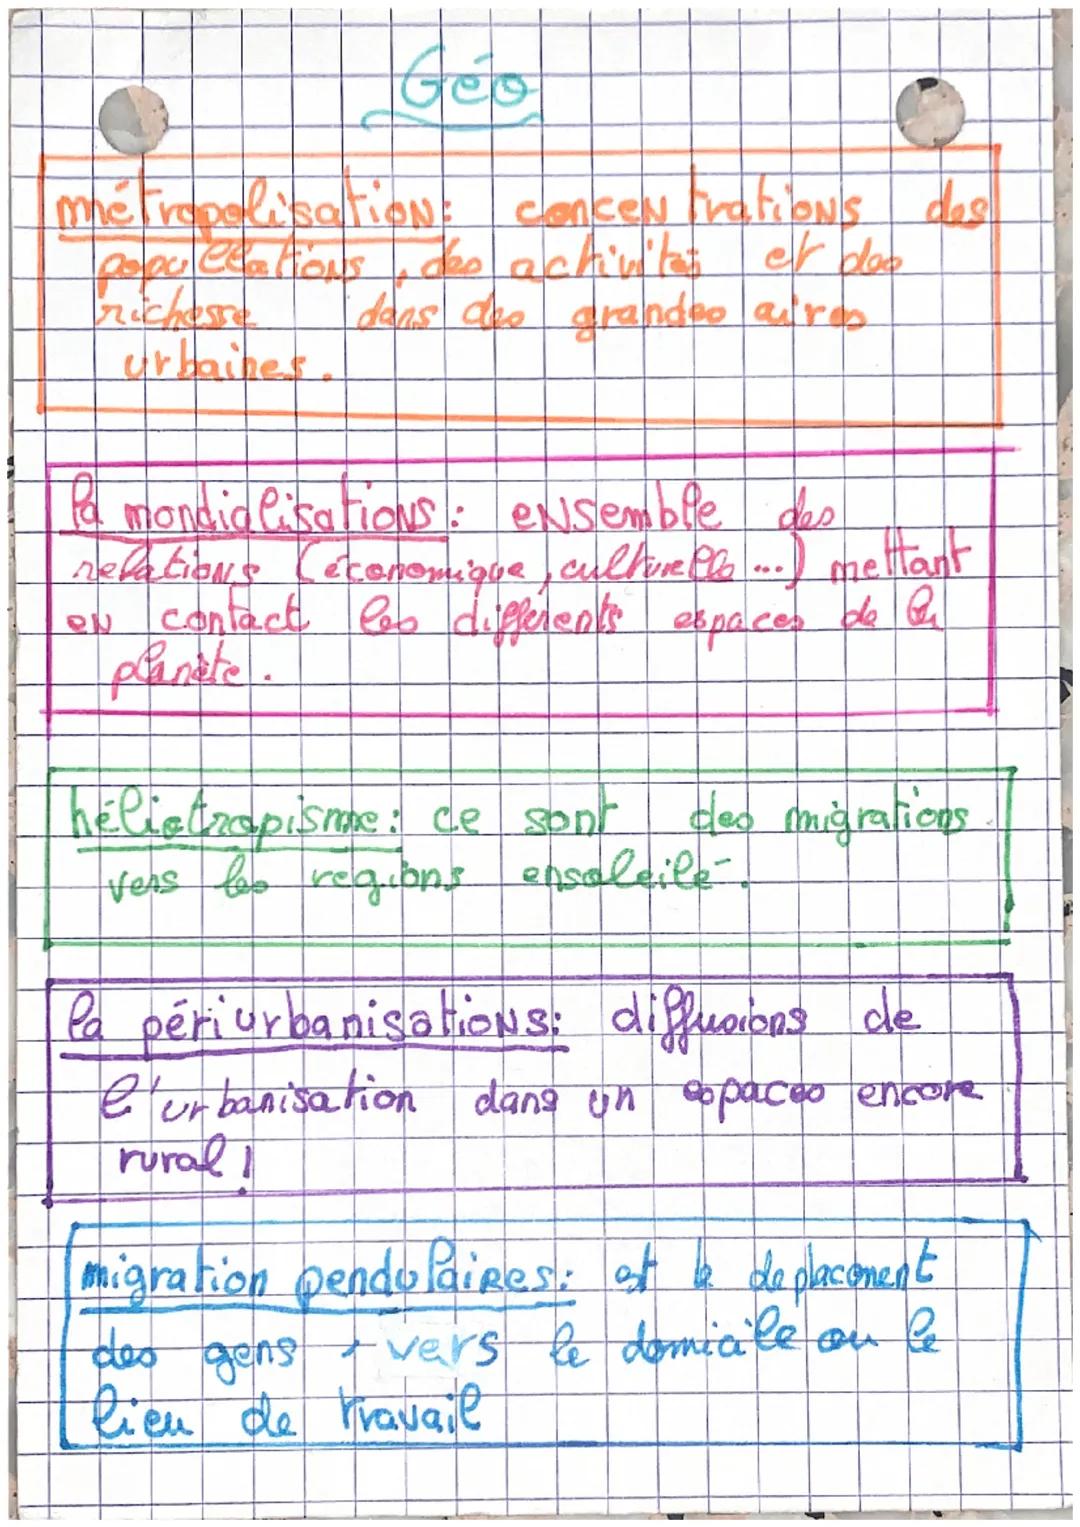 Géo
métropolisation: concentrations des
popullations, des activités et des
richesse dans des grandes aires
urbaines.
la mondialisations: ensemble des
relations (économique, culturelle ...) mettant
en contact les différents espaces de la
planète.
héliotropisme: ce sont des migrations
vers les regions ensoleilé.
la périurbanisations: diffusions de
l'urbanisation dans un espaces encore
rural!
migration pendulaires: est le deplacement
des gens vers le domicile ou le
lieu de travail